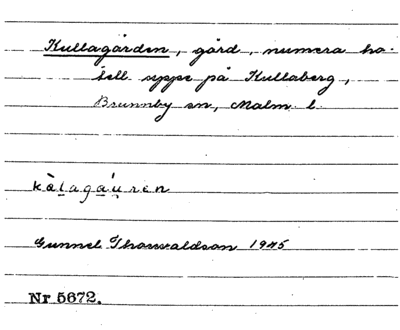 Kullagården, gård, numera ho-
tell uppe på Kullaberg,
Brunnby sn, Malm. l.
Gunnel Thorvaldson 1945
Nr 5672.